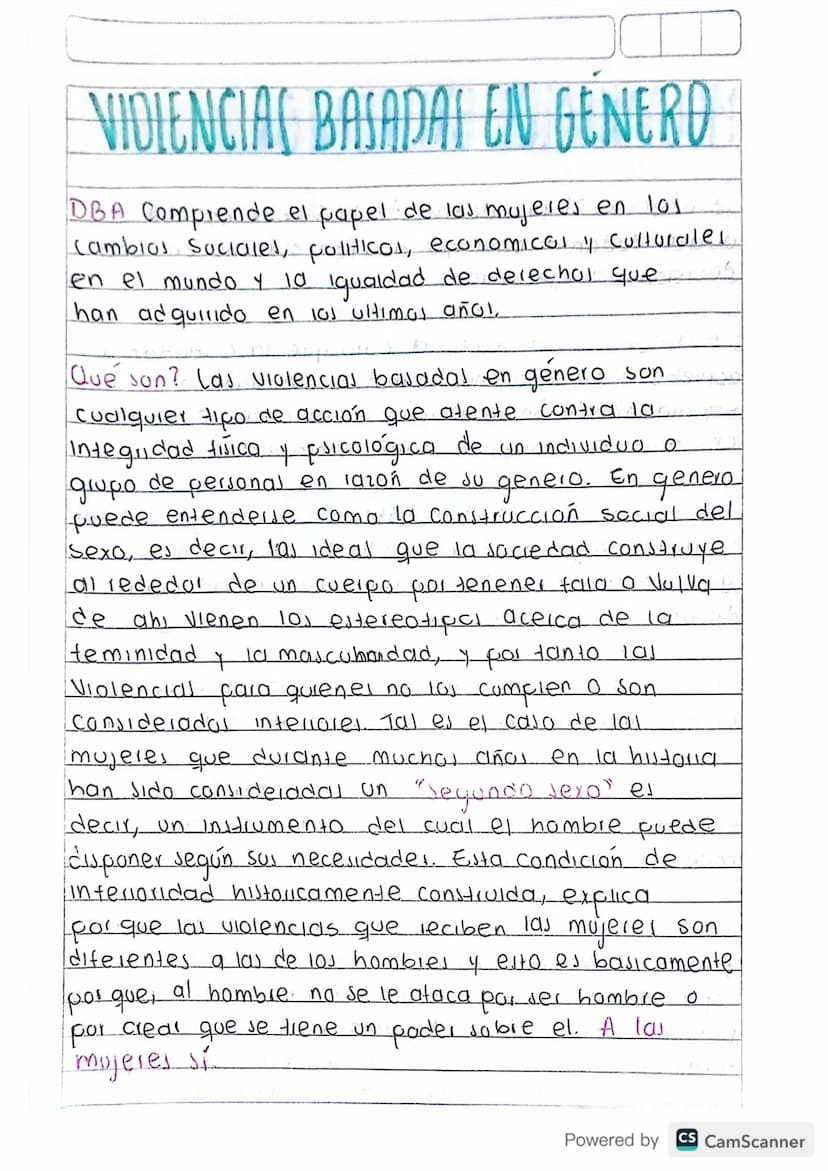 VIOLENCIAS BASADAS EN GÉNERO
DBA Comprende el papel de las mujeres en los
cambios sociales, politicos, economicos y culturales
en el mundo y la igualdad de derechos que
han adquirido en los ultimos años.
Qué son? Las violencias basadas en género son
cualquier tipo de acción que atente contra la
integridad física y psicológica de un individuo o
grupo de personas en razón de su genero. En genero
puede entenderse como la construcción social del
sexo, es decir, las ideas que la sociedad construye
al rededor de un cuerpo por tenener falo o vulva
de ahi vienen los estereotipos acerca de la
feminidad y la masculinidad, y por tanto las
violencias para quienes no los cumplen o son
considerados inferiores. Tal es el caso de las
mujeres que durante muchos años en la historia
han sido consideradas un "segundo sexo" es
decir, un instrumento del cual el hombre puede
disponer según sus necesidades. Esta condición de
inferioridad historicamente construida, explica
por que las violencias que reciben las mujeres son
diferentes a las de los hombres y esto es basicamente
por que, al hombre no se le ataca por ser hombre o
por crear que se tiene un poder sobre el. A las
mujeres sí.
Powered by CS CamScanner